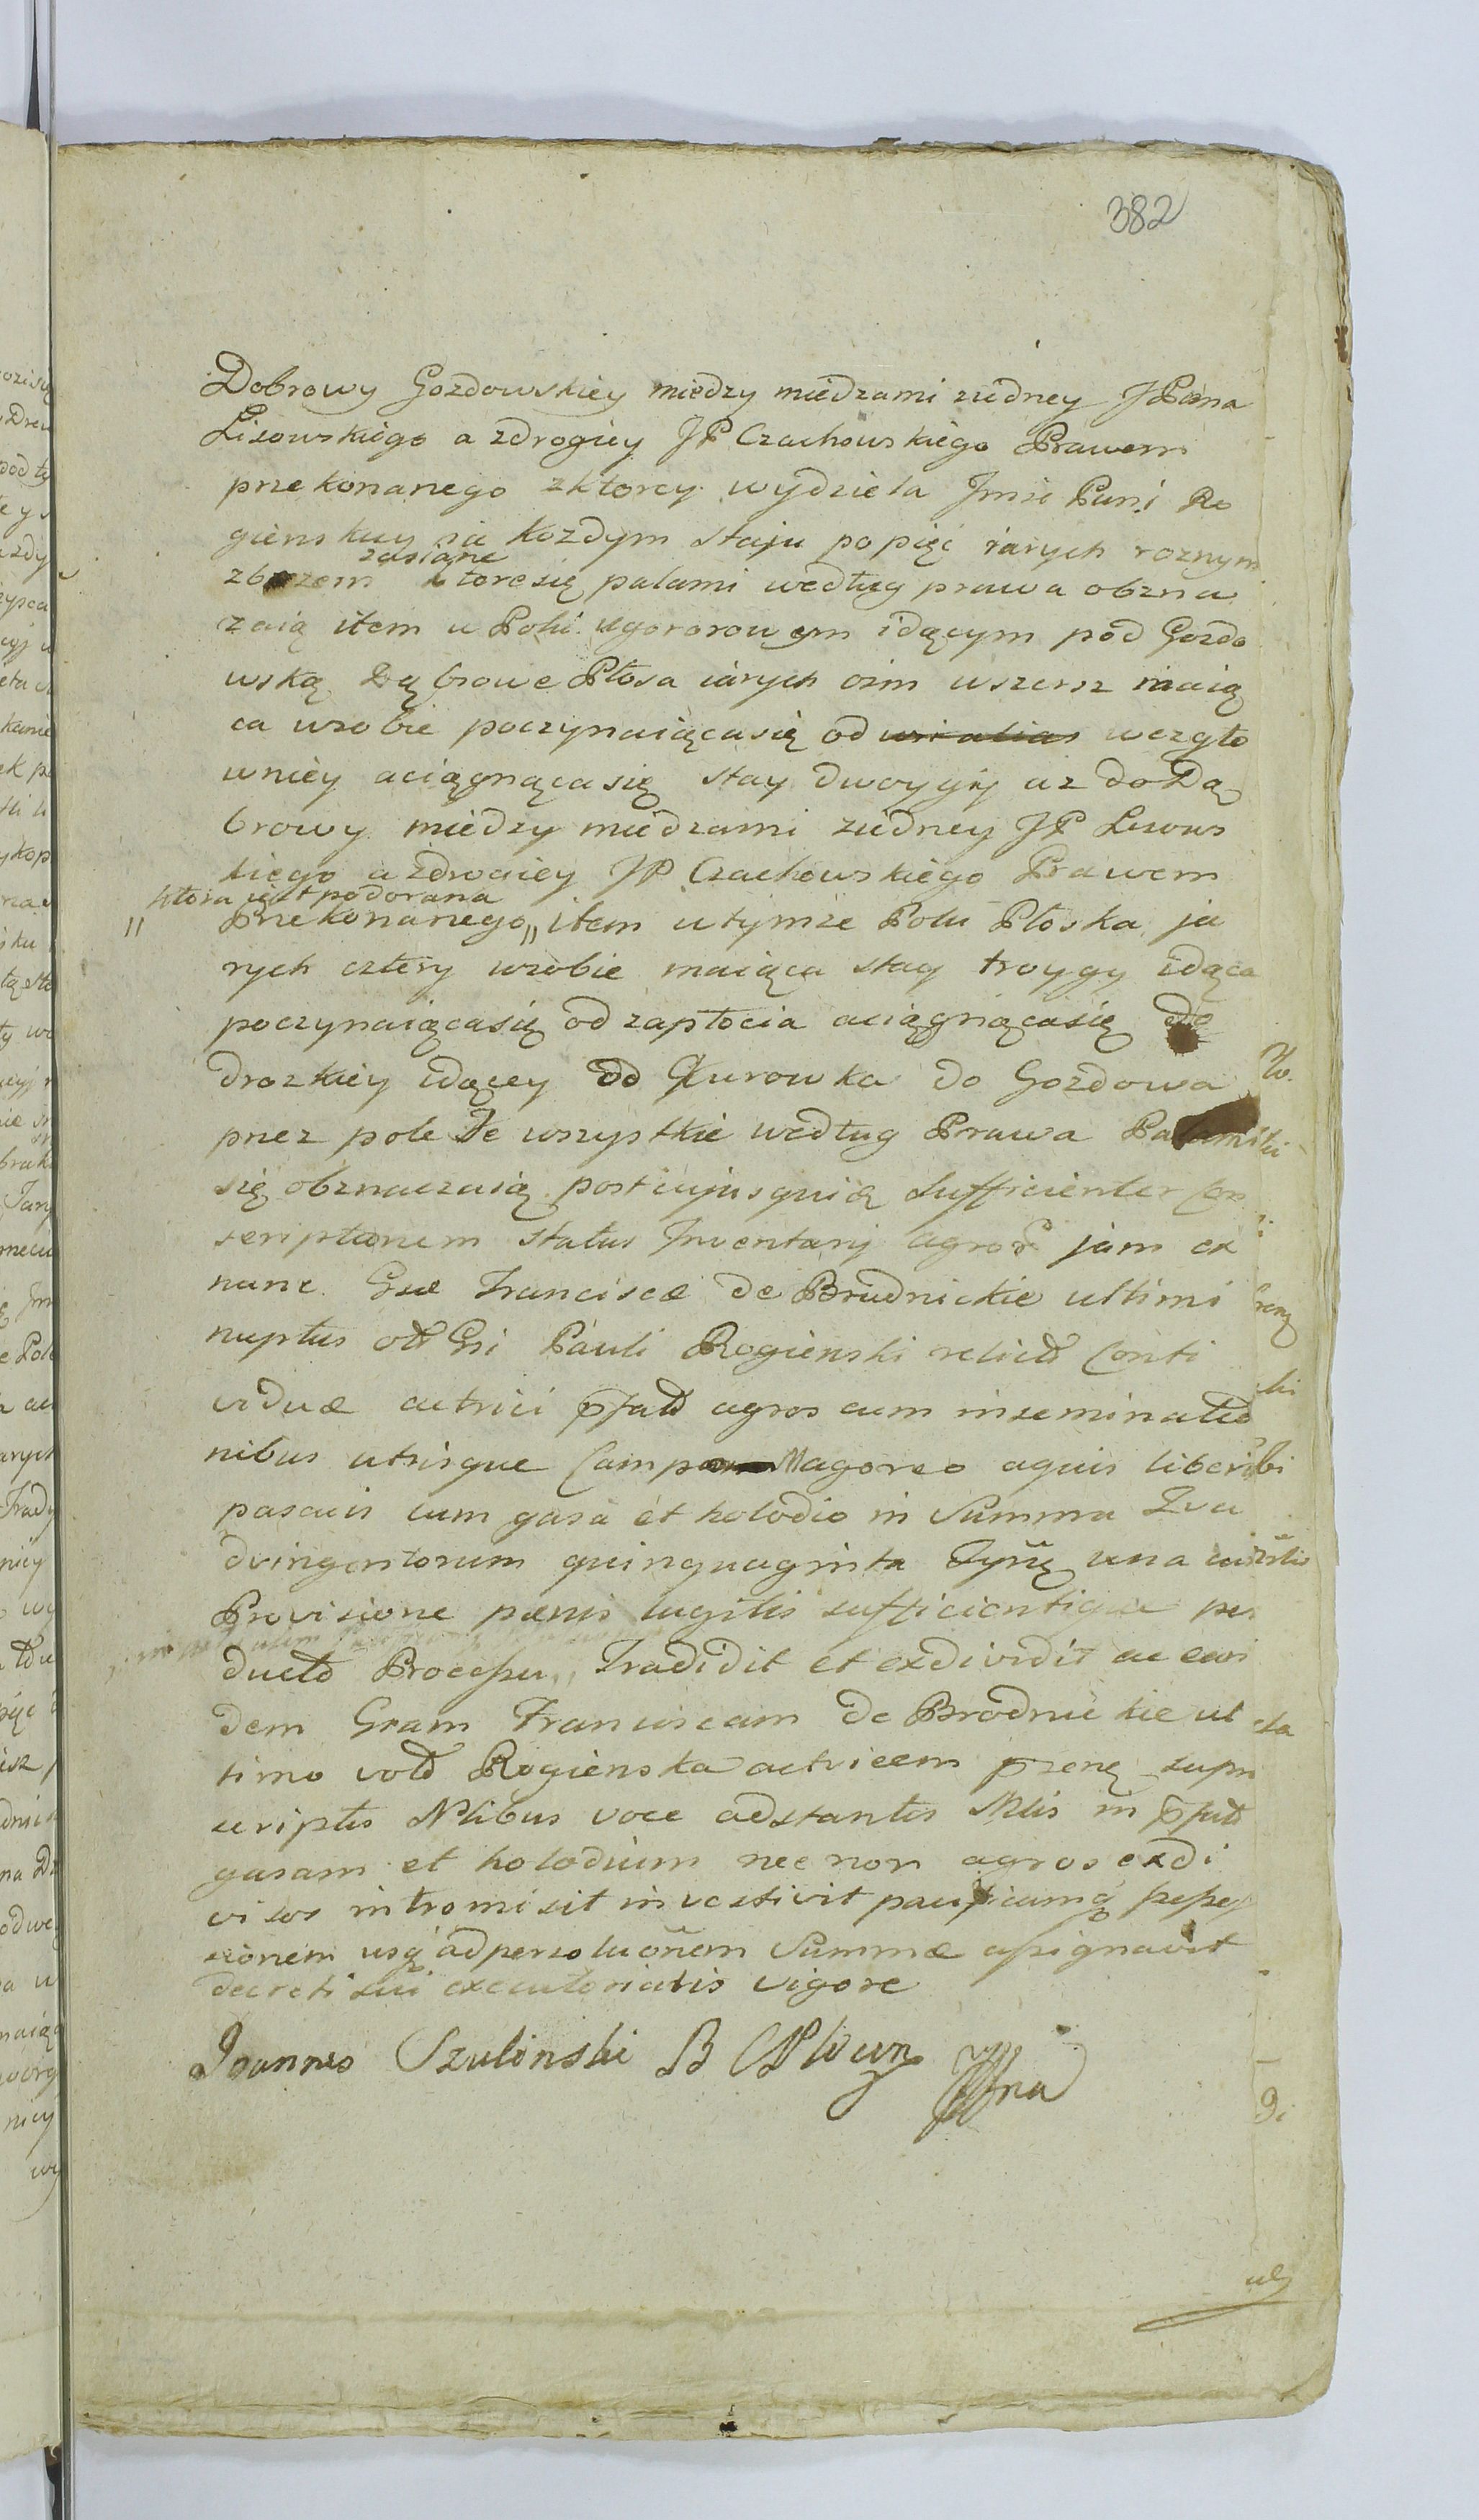 382
Dobrowy Gozdowskiey miedzy miedzami ziedney JPana
Lisowskiego a zdrogiey JP Czachowskiego Prawem
przekonanego zktorey wydziela Jmsc Pani Ro
gienskiey na kozdym staju popięc iarych roznym
zasiane
zbozem ktoresię palami według prawa obzna
zaią item w Polu ugororowym idącym pod Gozdo
wską Dąbrowe Płosa iarych osim wszersz maią
ca wsobie poczynaiącasię od wezgło
wniey aciągnącasię stay dwoygiy az do Dą
browy miedzy miedzami ziedney JP Lisows
kiego azdrogiey JP Czachowskiego Prawem
ktora iest podorana
" przekonanego " item wtymze Polu Płoska ja
rych cztery wsobie maiąca stay troygy idąca
poczynaiącasię od zapłocia aciągnącasię do
drozkiey idącey od Gurowka do Gozdowa
przez pole Te wszystkie według Prawa Palami
się obznaczaią post cujusquidę sufficienter Con
scriptionem status Inventarij agror jam ex
nunc Gsæ Franciscæ de Brudnickie ultimi
nuptus olt Gsi Pauli Rogienski relictæ Conti
viduæ actrici pfatt agros cum inseminatio
nibus utrisque Camp Magoreo aquis liberis
pascuis cum gasa et holodio in Summa Qua
dringentorum quinquaginta Tynf una cum
Provisione pænis lugitis sufficientique per
ducto Processu Tradidit et exdividit ac ean
dem Gram Franciscam de Brodnickie ul
timo vott Rogienska actricem pzenę supra
scriptis Nlibus voce adstantes Mtis in pfatt
gasam et holodium nec non agros exdi
visos intromisit investivit pacificamq possess
sionem usq ad persolucionem Summæ assignavit
decreti sui executorialis vigore
Joannes Szulinski B